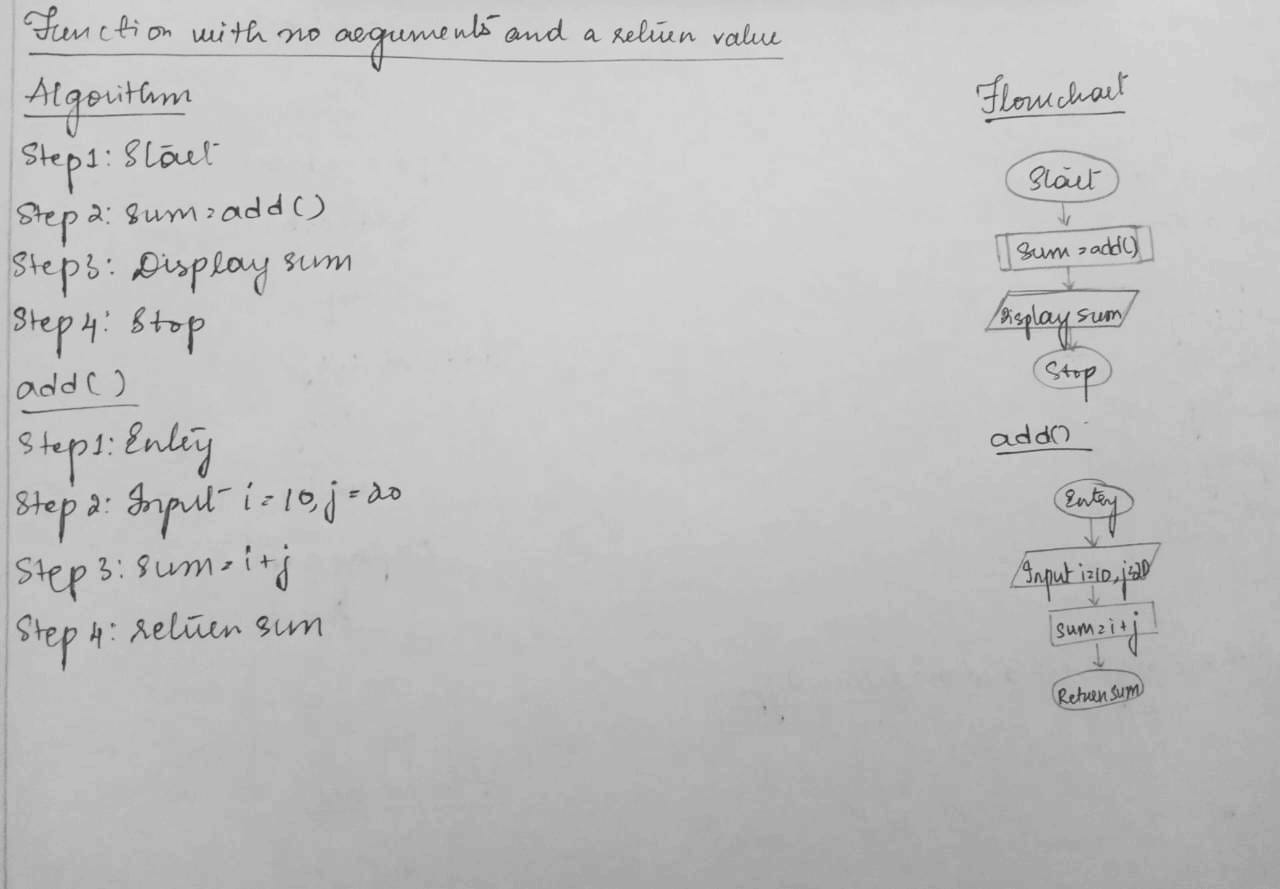 Function with no arguments and a return value
Algorithm
Step1: Start
Step 2: sum=add()
Step3: Display sum
Step 4: Stop
add()
Step1: Entry
Step 2: Input i=10, j=20
Step 3: sum=i+j
Step 4: return sum
Flowchart
Start
sum=add()
Display sum
Stop
add()
Entry
Input i=10, j=20
sum=i+j
Return sum